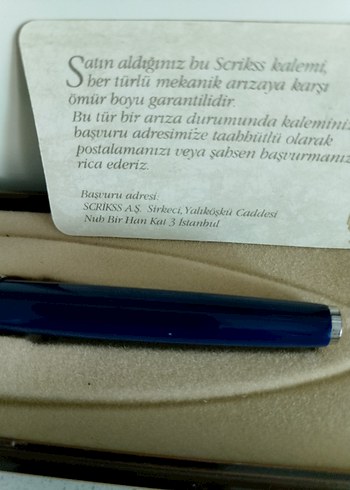 Satın aldığınız bu Scrikss kalemi,
her türlü mekanik arızaya karşı
ömür boyu garantilidir.
Bu tür bir arıza durumunda kaleminiz
başvuru adresimize taahhütlü olarak
postalamanızı veya şahsen başvurmanız
rica ederiz.
Başvuru adresi:
SCRİKSS A.Ş. Sirkeci, Yalıköşkü Caddesi
Nuh Bir Han Kat 3 İstanbul